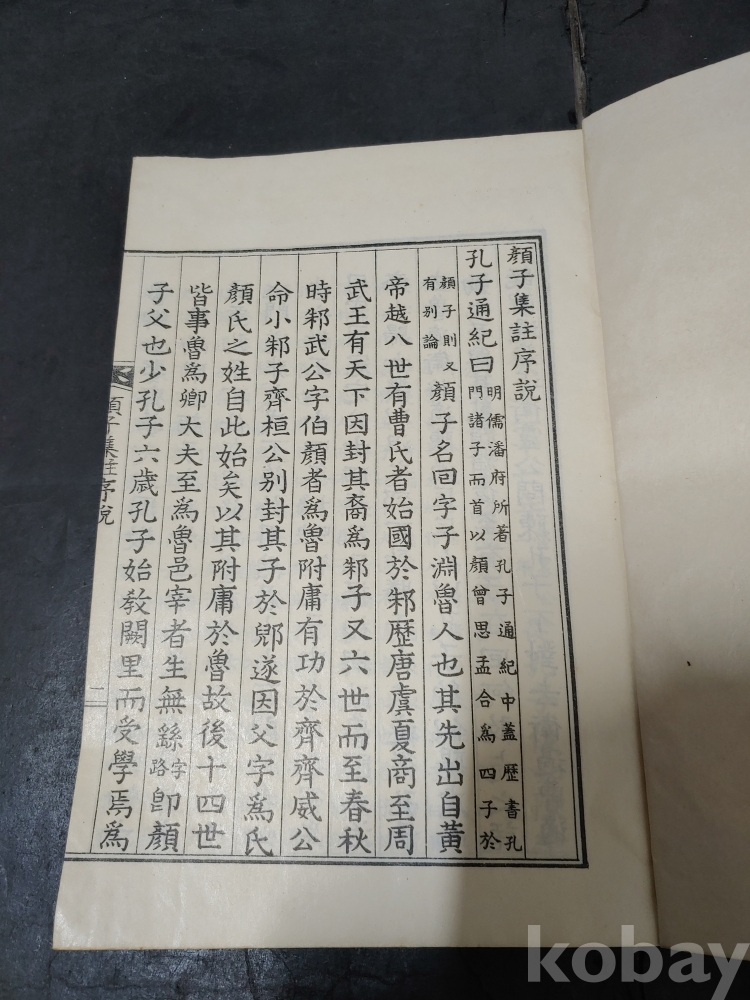 顏子集註序說
孔子通紀曰 明儒潘府所著孔子通紀中蓋歷書孔
門諸子而首以顏曾思孟合爲四子於
顏子則又
有別論
顏子名回字子淵魯人也其先出自黃
帝越八世有曹氏者始國於邾歷唐虞夏商至周
武王有天下因封其裔爲邾子又六世而至春秋
時邾武公字伯顏者爲魯附庸有功於齊齊威公
命小邾子齊桓公別封其子於郳遂因父字爲氏
顏氏之姓自此始矣以其附庸於魯故後十四世
皆事魯爲卿大夫至爲魯邑宰者生無繇 字
路 卽顏
子父也少孔子六歲孔子始敎闕里而受學焉爲
顏子集註序說
二
kobay